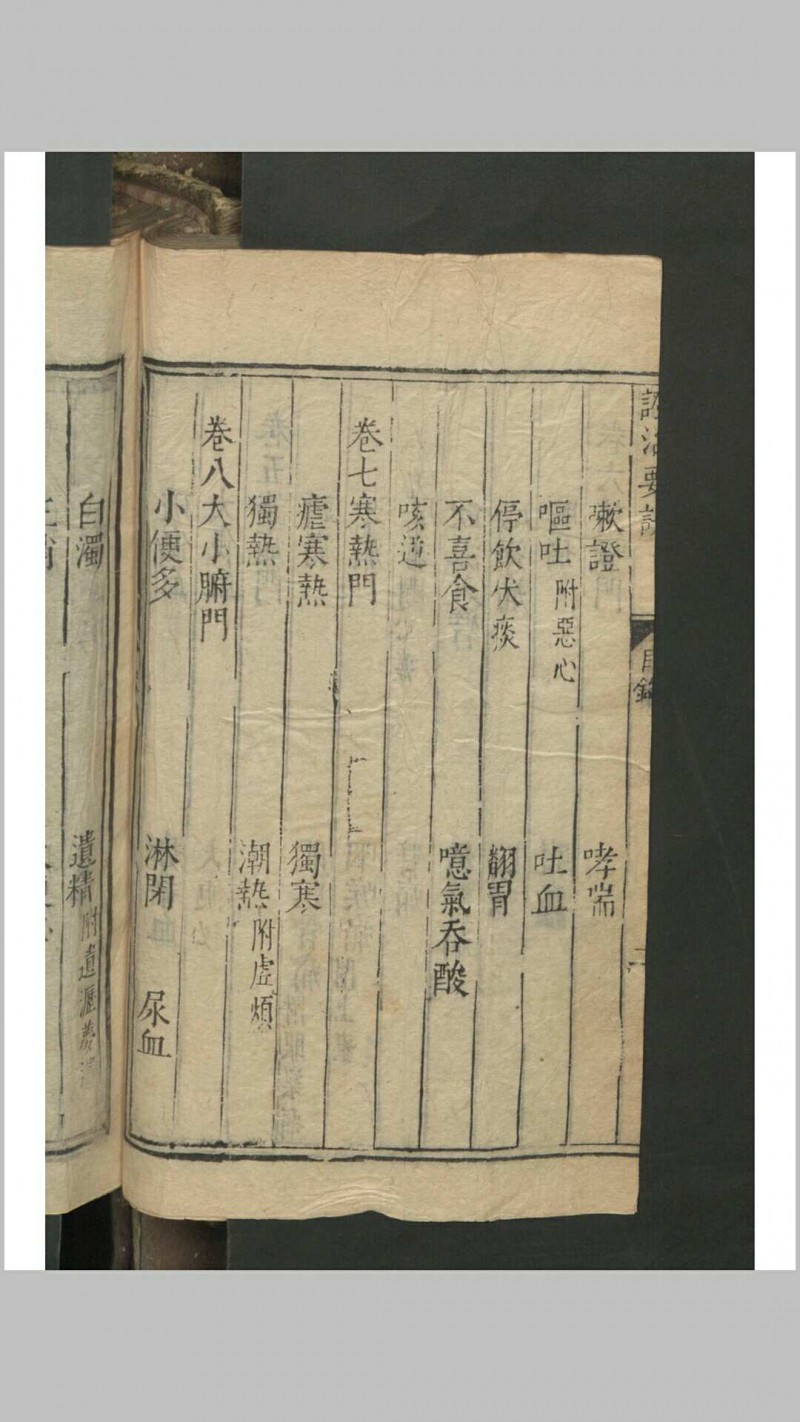 證治要訣
目錄
二
嗽證 哮喘
嘔吐附惡心 吐血
停飲伏痰 翻胃
不喜食 噫氣吞酸
咳逆
卷七寒熱門
瘧寒熱 獨寒
獨熱 潮熱附虛煩
卷八大小腑門
小便多 淋閉 尿血
白濁 遺精附遺瀝